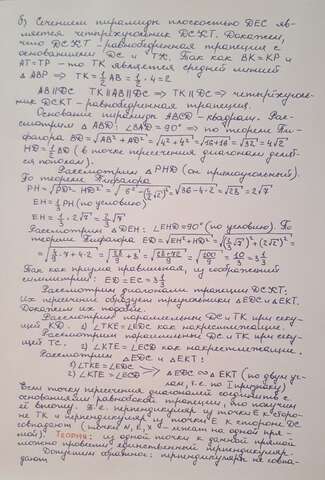 б) Сечением пирамиды плоскостью DEC яв-
ляется четырёхугольник DCKT. Докажем,
что DCKT - равнобедренная трапеция с
основаниями DC и TK. Так как BK = KP и
AT = TP - то TK является средней линией
△ABP ⇒ TK = 1/2 AB = 1/2 · 4 = 2
AB ∥ DC TK ∥ AB ∥ DC ⇒ TK ∥ DC ⇒ четырёхуголь-
ник DCKT - равнобедренная трапеция.
Основание пирамиды ABCD - квадрат. Рас-
смотрим △ABD: ∠BAD = 90° ⇒ по теореме Пи-
фагора BD = √AB² + AD² = √4² + 4² = √16+16 = √32 = 4√2
HD = 1/2 BD (в точке пересечения диагонали делят-
ся пополам).
Рассмотрим △PHD (он прямоугольный).
По теореме Пифагора
PH = √PD² - HD² = √6² - (2√2)² = √36-4·2 = √28 = 2√7
EH = 1/3 PH (по условию)
EH = 1/3 · 2√7 = 2/3 √7
Рассмотрим △DEH: ∠EHD = 90° (по условию). По
теореме Пифагора ED = √EH² + HD² = √(2/3 √7)² + (2√2)² =
= √4/9 · 7 + 4·2 = √28/9 + 8 = √28+72/9 = √100/9 = 10/3 = 3 1/3
Так как призма правильная, из соображений
симметрии: ED = EC = 3 1/3
Рассмотрим диагонали трапеции DCKT.
Их пересечения образуют треугольники △EDC и △EKT.
Докажем их подобие.
Рассмотрим параллельные DC и TK при секу-
щей KD. 1) ∠TKE = ∠EDC как накрестлежащие.
Рассмотрим параллельные DC и TK при секу-
щей TC. 2) ∠KTE = ∠ECD как накрестлежащие.
Рассмотрим △EDC и △EKT:
1) ∠TKE = ∠EDC
2) ∠KTE = ∠ECD ⇒ △EDC ∾ △EKT (по двум уг-
лам, т.е. по I признаку)
точку пересечения диагоналей соединить с
основаниями равнобокой трапеции, то получим
её высоту. Т.е. перпендикуляр из точки E к сторо-
не TK и перпендикуляр из точки E к стороне DC
совпадают (точки N, E, X лежат на одной пря-
мой). ТЕОРИЯ: из одной точки к данной прямой
можно провести единственный перпендикуляр.
Допустим обратное: перпендикуляры не совпа-
дают